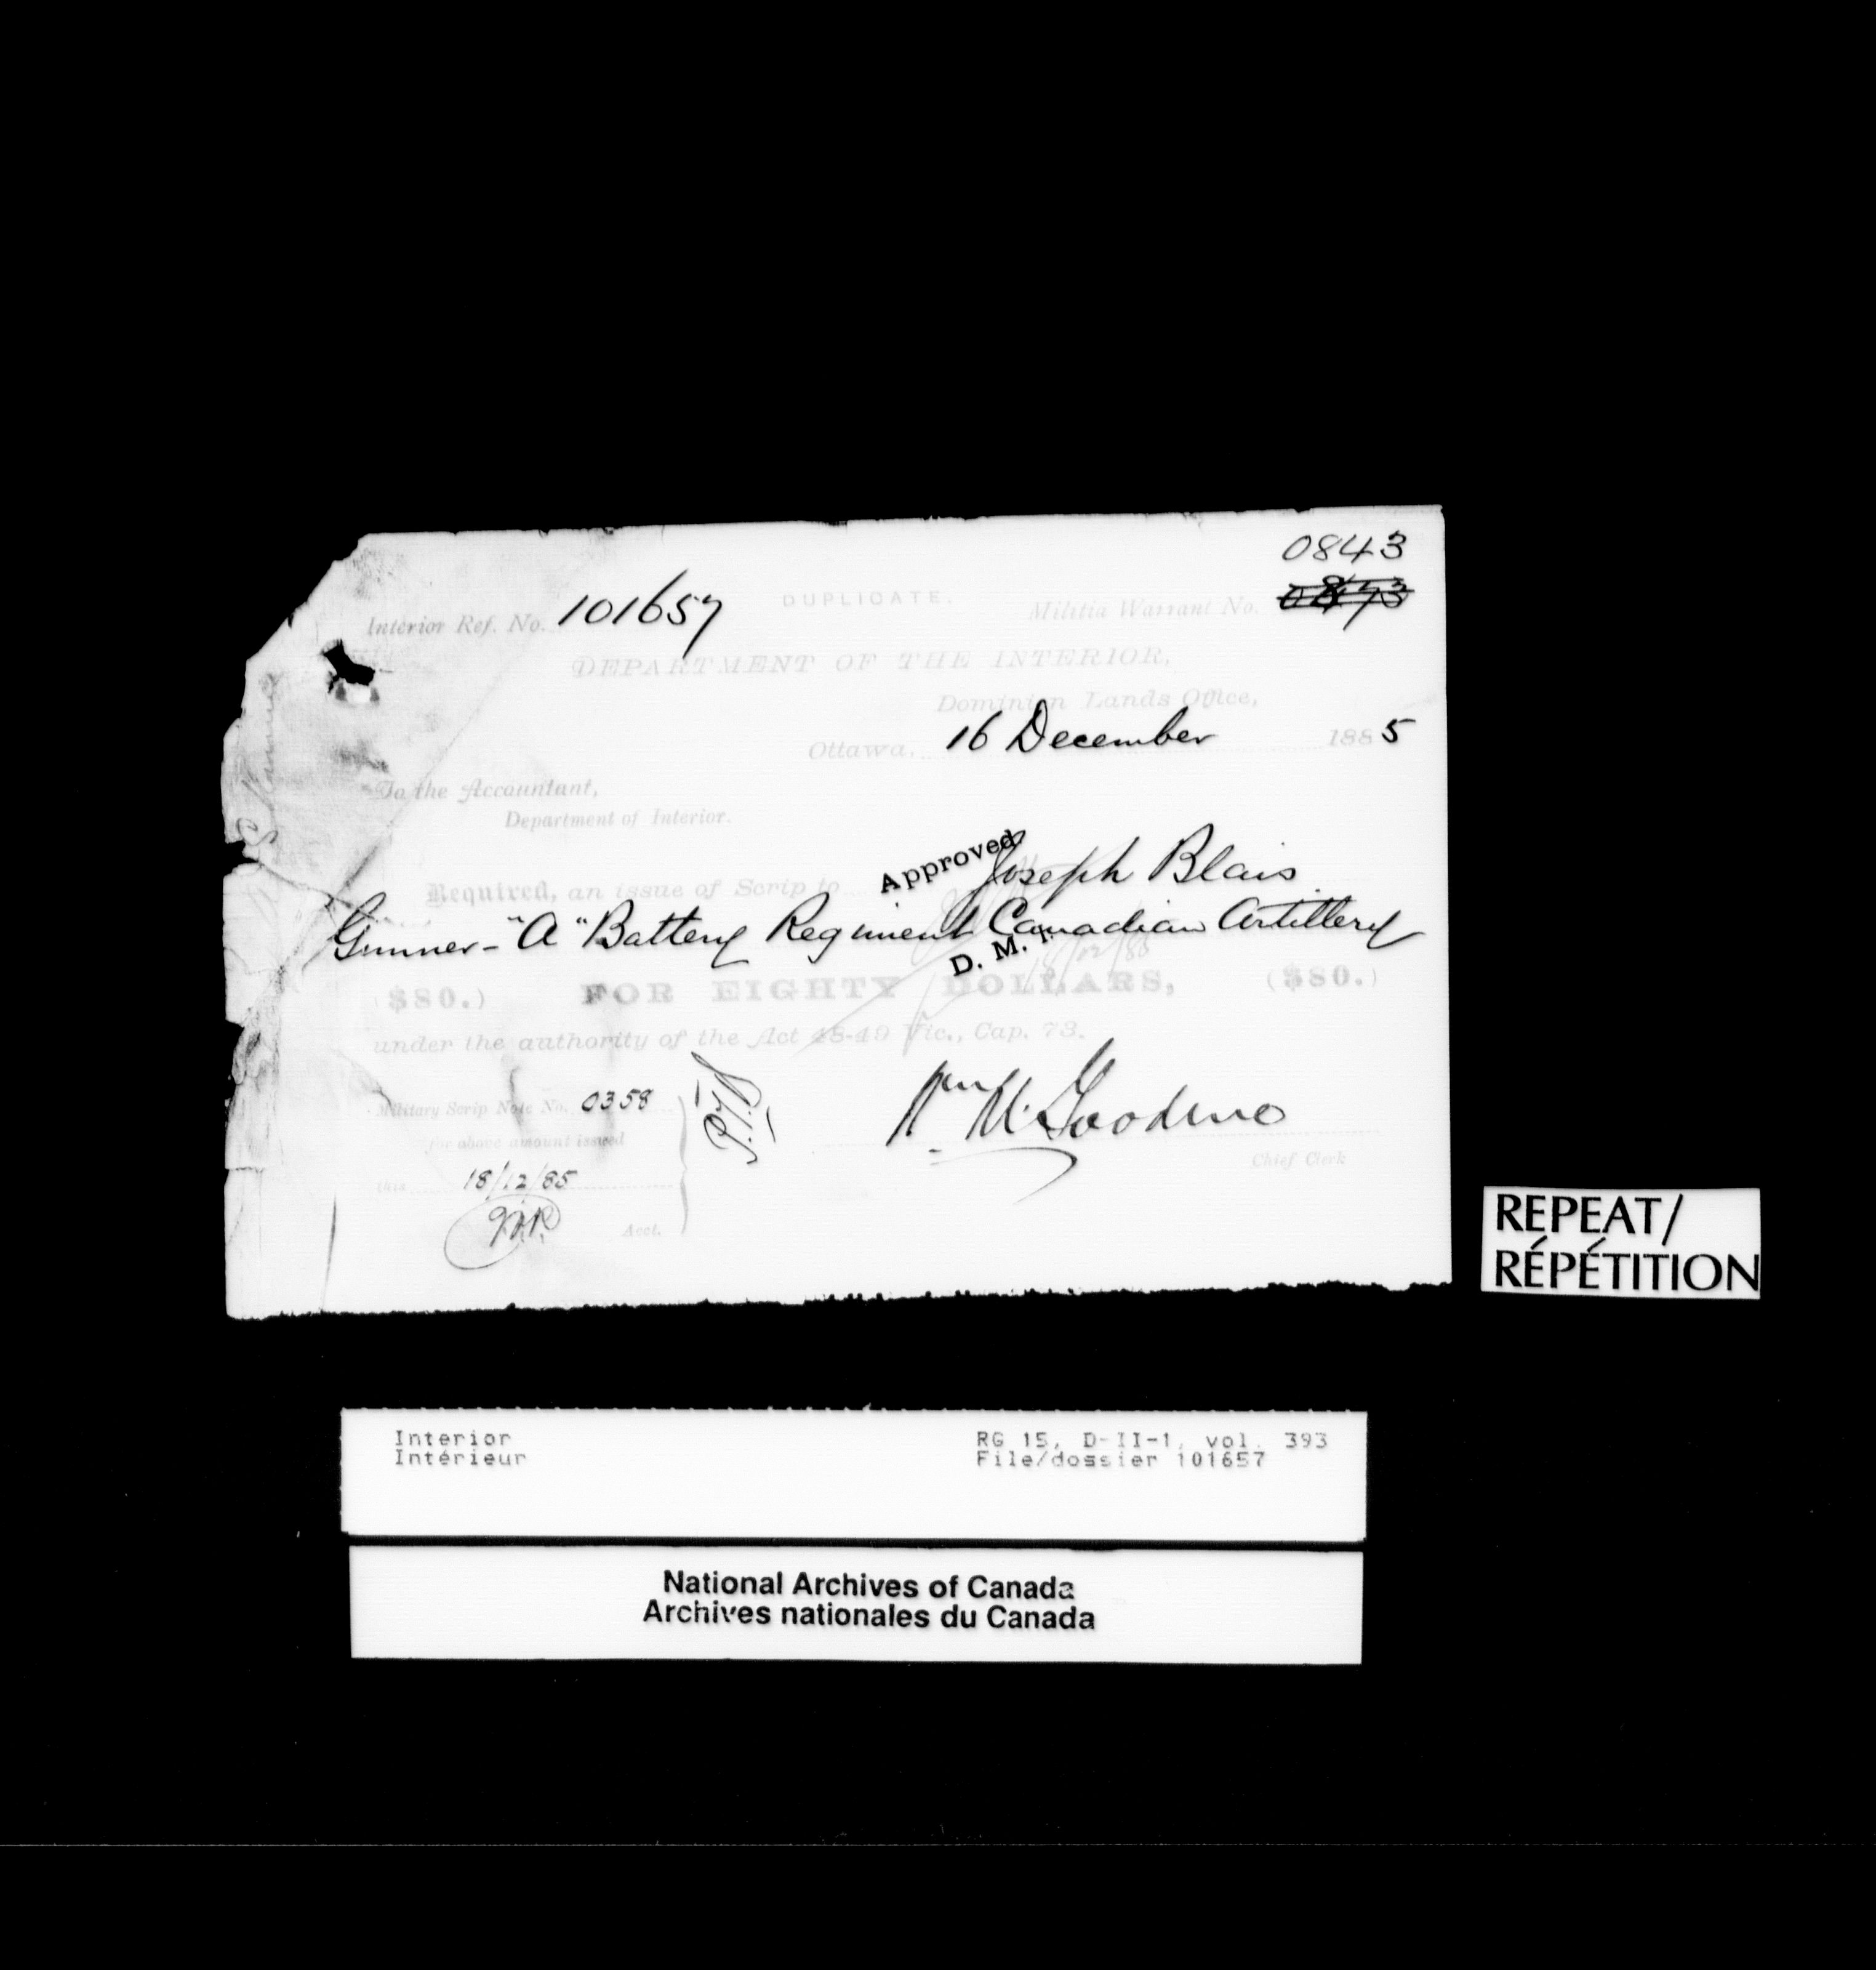 0843
Interior Ref. No. 101657 DUPLICATE. Militia Warrant No.
DEPARTMENT OF THE INTERIOR,
Dominion Lands Office,
Ottawa, 16 December 1885
To the Accountant,
Department of Interior.
Approved
Required, an issue of Scrip to Joseph Blais
Gunner - "A" Battery Regiment Canadian Artillery
D. M. I.
18/12/85
($80.) FOR EIGHTY DOLLARS, ($80.)
under the authority of the Act 48-49 Vic., Cap. 73.
Military Scrip Note No. 0358
for above amount issued
this 18/12/85
Acct.
Wm M. Goodeve
Chief Clerk
REPEAT/
RÉPÉTITION
Interior RG 15, D-II-1, vol. 393
Intérieur File/dossier 101657
National Archives of Canada
Archives nationales du Canada